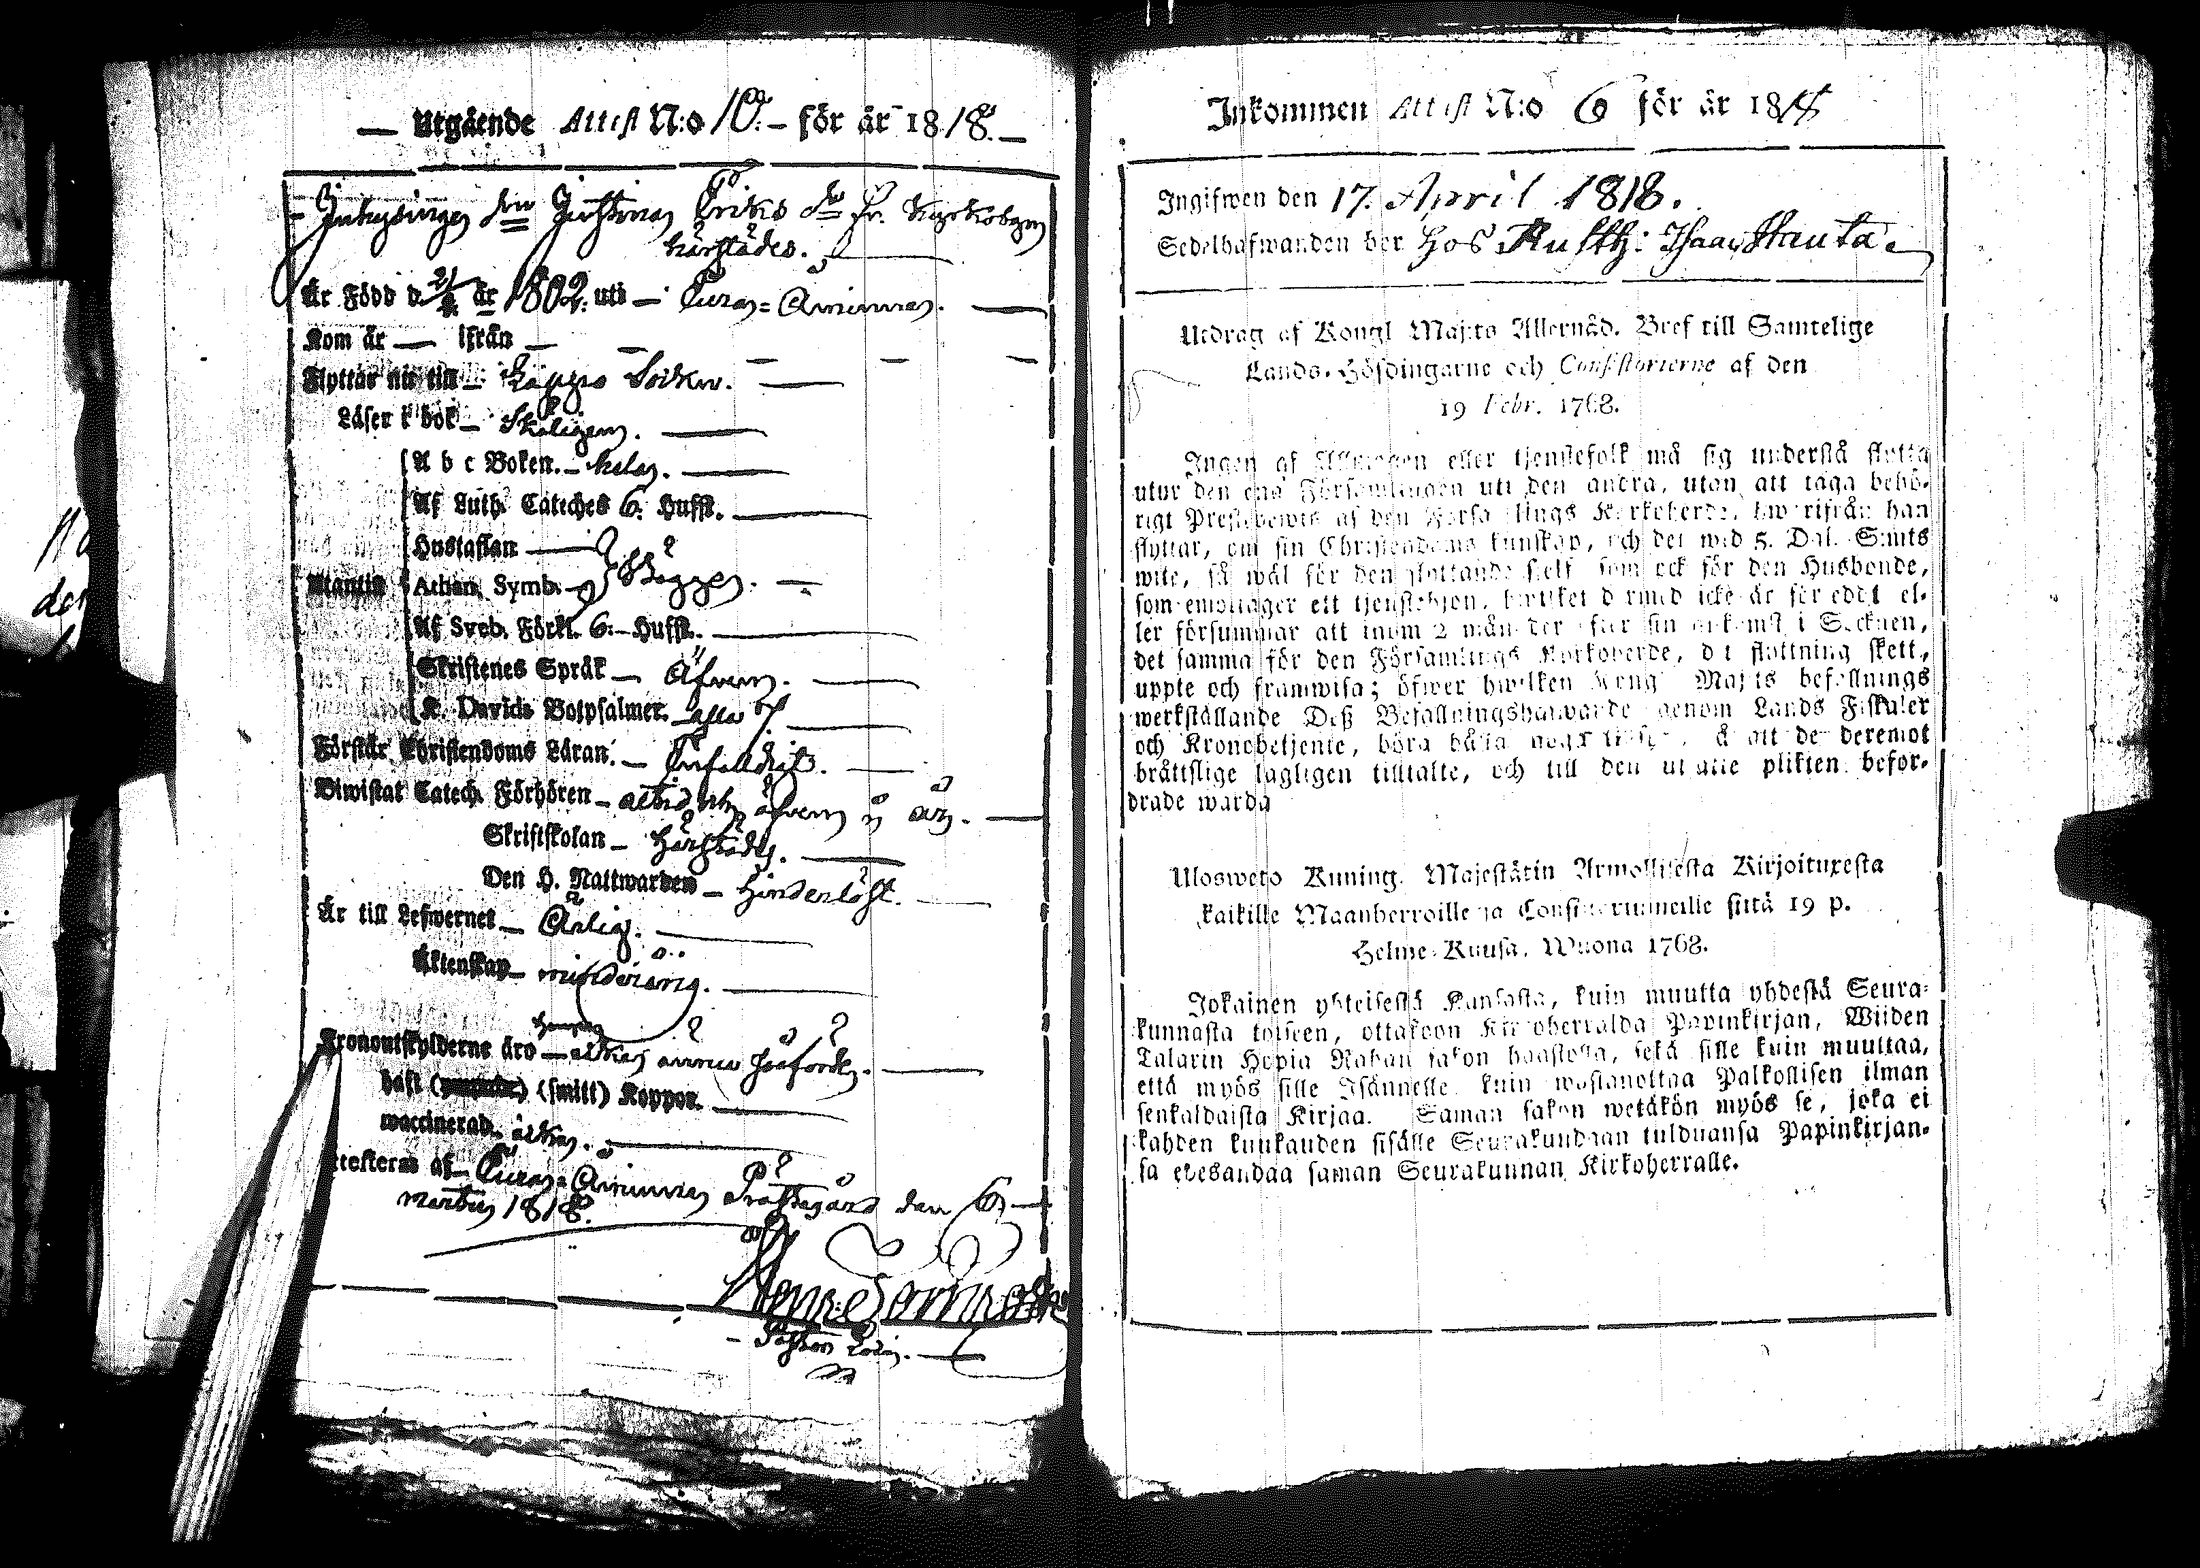 — Utgående Attest N:o 10. – för år 1818. —
Inhysingen Justina Eriks dr fr. Kyrkobyn
härstädes.
Är Född d. år 1802. uti — Eura-Åminne.
Kom år — ifrån —
Flyttar nu till – Kappo Socken.
Läser i bok – Skäligen.
A b c Boken. – hela.
Af Luth. Cateches 6. Hufst.
Hustaflan —
Utantil Athan. Symb. – Begge.
Af Sveb. Förkl. 6. – Hufst.
Skriftenes Språk — Äfven.
K. Davids Botpsalmer. – alla 7.
Förstår Christendoms Läran. – Enfaldigt.
Biwistat Catech. Förhören – altid och äfven i år.
Skriftskolan – härstädes.
Den H. Nattwarden – Hinderlöst.
Är till Lefwernet – Ärlig.
Äktenskap – minderårig.
Kronoutskylderne äro –
haft (smitt) Koppor.
waccinerad.
Attesteras af – Eura-Åminne Prästegård den 6.
martii 1818.
Pastor Loci.
Inkommen Attest N:o 6 för år 1818
Ingifwen den 17. April 1818.
Sedelhafwanden bor hos Rusth: Isaac
Utdrag af Kongl Maj:ts Allernåd. Bref till Samtelige
Lands-Höfdingarne och Consistorierne af den
19 Febr. 1768.
Ingen af Allmogen eller tjenstefolk må sig understå flytta
utur den ena Församlingen uti den andra, utan att taga behö-
rigt Prestebewis af den Församlings Kyrkoherde, hwarifrån han
flyttar, om sin Christendoms kunskap, och det wid 5. Dal. S:mts
wite, så wäl för den flyttande sielf som ock för den Husbonde,
som emottager ett tjenstehjon, hwilket dermed icke är försedt el-
ler försummar att inom 2 månader efter sin ankomst i Socknen,
det samma för den Församlings Kyrkoherde, dit flyttning skett,
uppte och framwisa; öfwer hwilken Kongl Maj:ts befallnings
werkställande Deß Befallningshafwande genom Lands Fiskaler
och Kronobetjente, böra hålla noga tillsyn, så att de deremot
bråttslige lagligen tilltalte, och till den utsatte plikten befor-
drade warda
Ulosweto Kuning. Majestätin Armollisesta Kirjoituxesta
kaikille Maanherroille ja Consistoriumeille siitä 19 p.
Helme-Kuusa, Wuona 1768.
Jokainen yhteisestä Kansasta, kuin muutta yhdestä Seura-
kunnasta toiseen, ottakoon Kirkoherralda Papinkirjan, Wiiden
Talarin Hopia Rahan sakon haastolla, sekä sille kuin muuttaa,
että myös sille Isännelle, kuin wastanottaa Palkollisen ilman
senkaldaista Kirjaa. Saman sakon wetäkön myös se, joka ei
kahden kuukauden sisälle Seurakundaan tulduansa Papinkirjan-
sa edesandaa saman Seurakunnan Kirkoherralle.